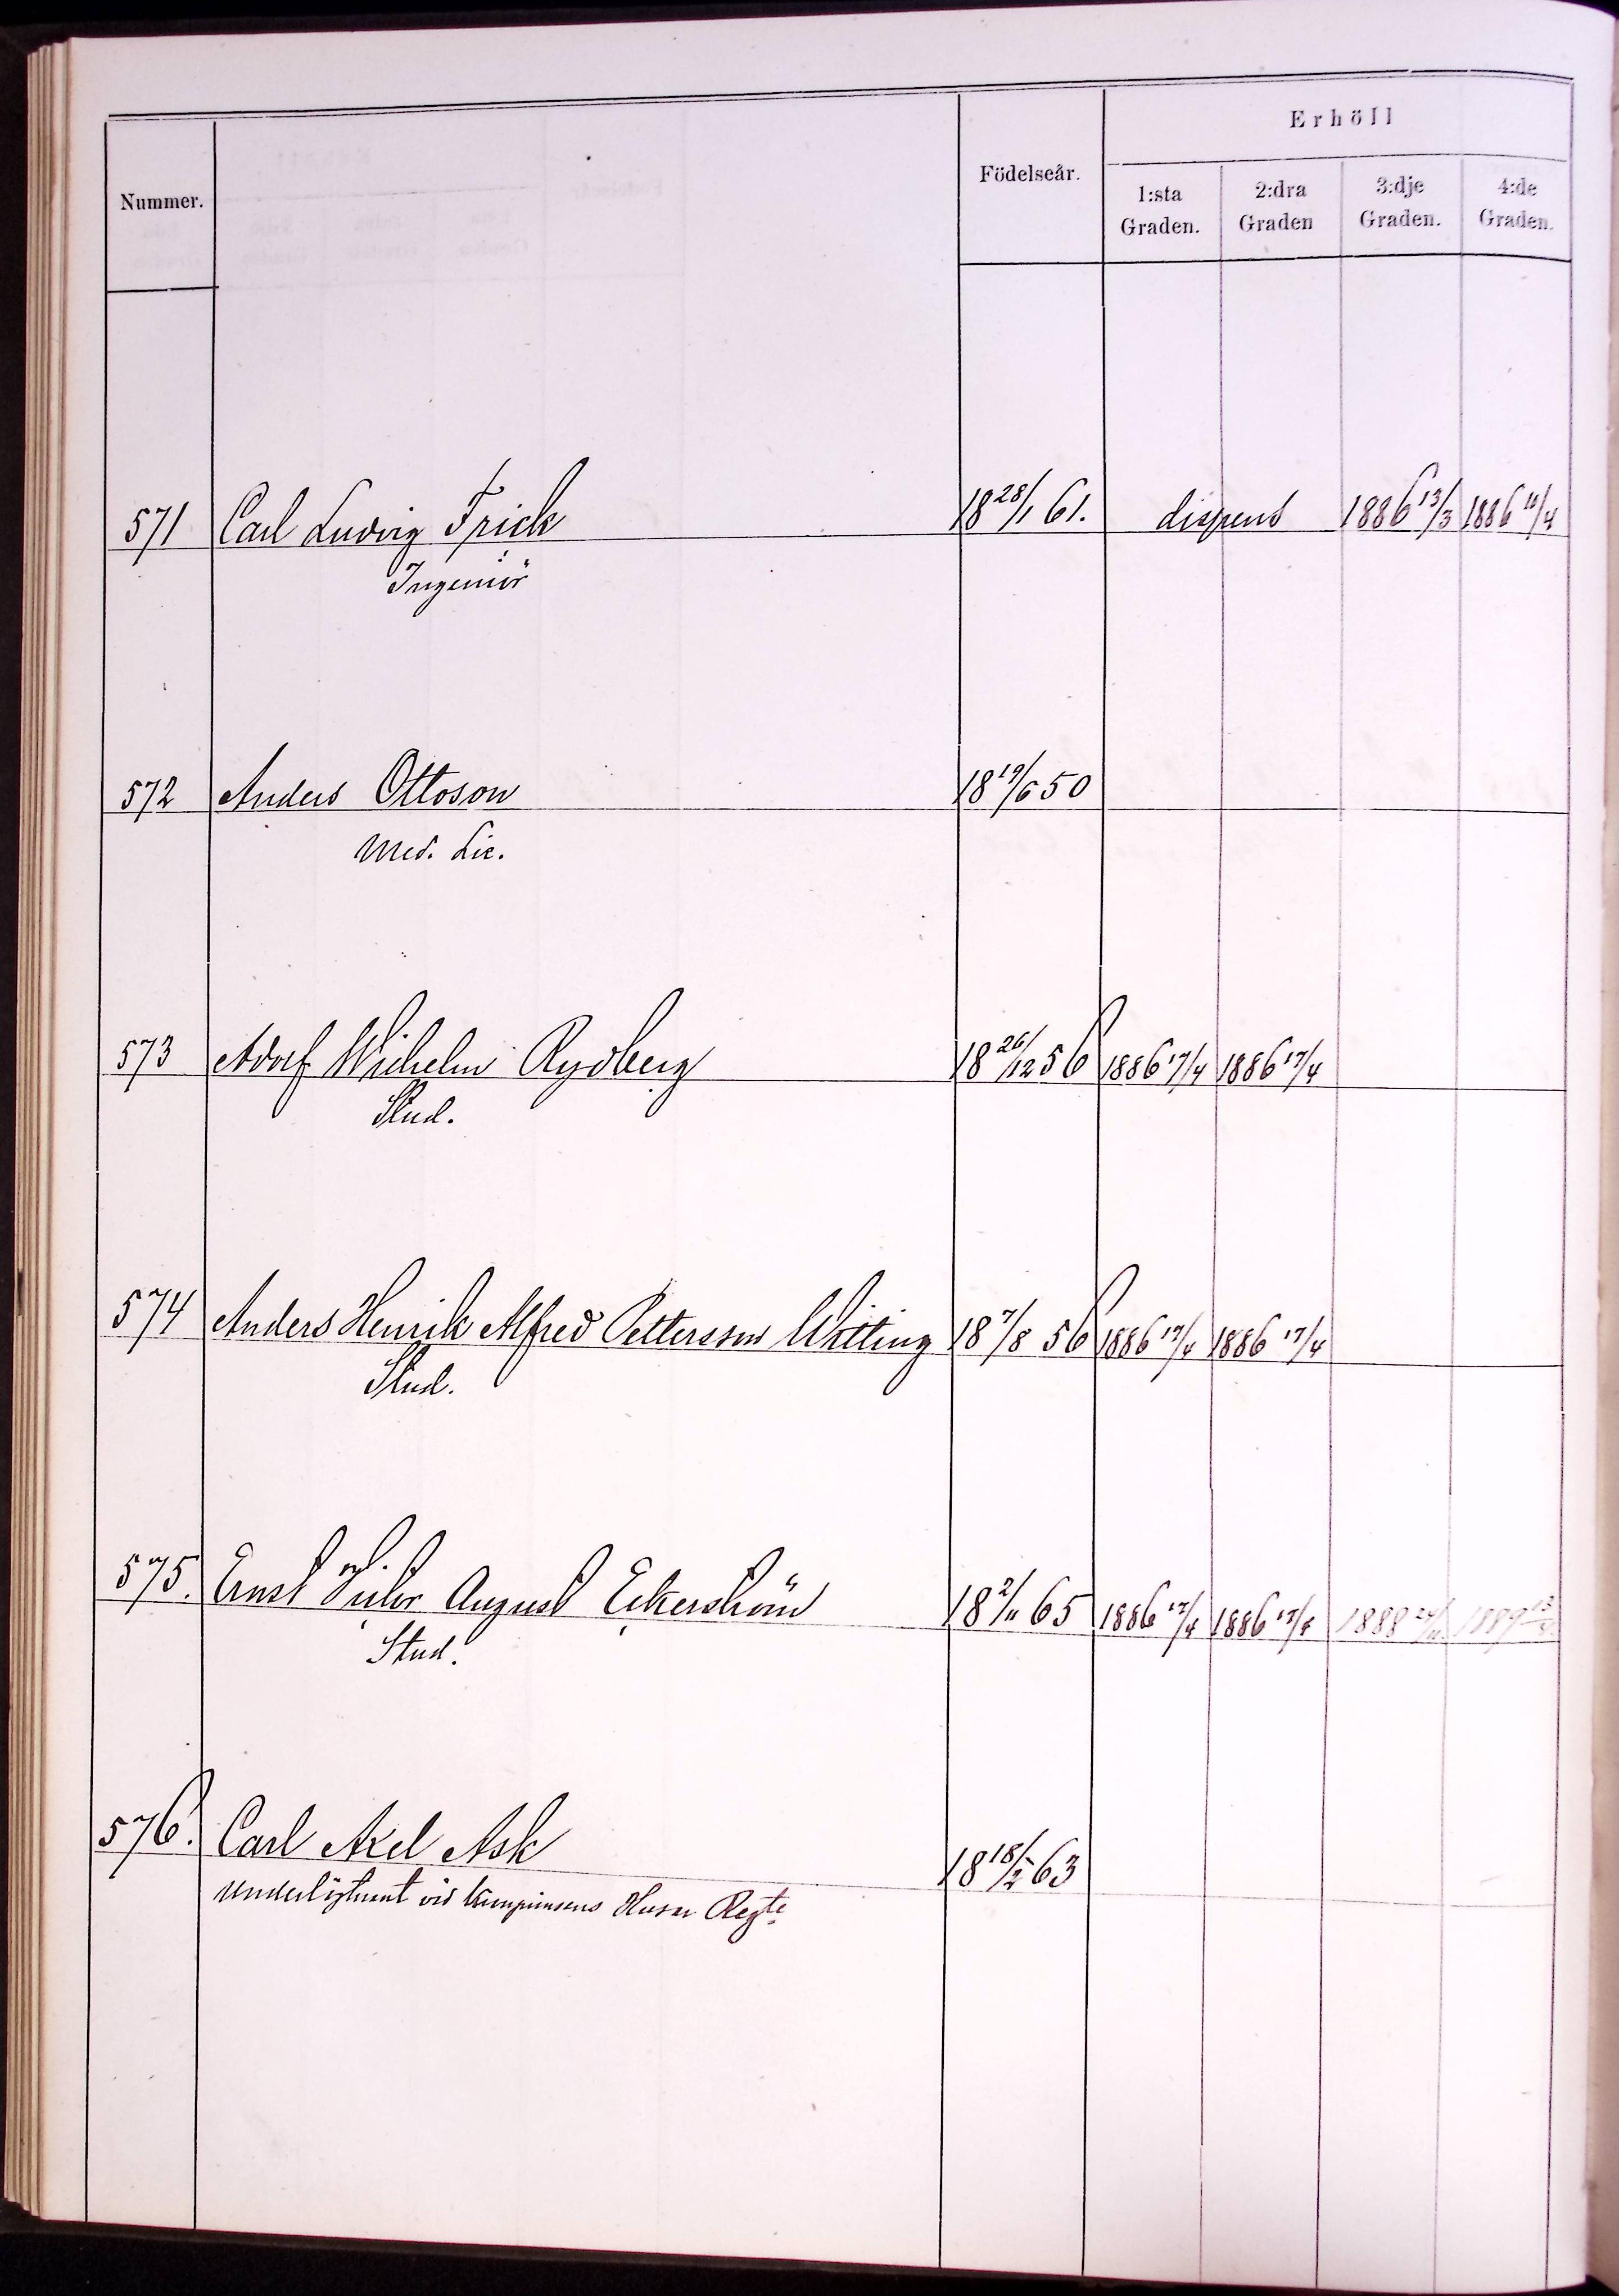 Erhöll
Nummer.
Födelseår.
1:sta Graden.
2:dra Graden
3:dje Graden.
4:de Graden.
571 Carl Ludvig Frick 18 28/1 61. dispens 1886 13/3 1886 10/4
Ingeniör
572 Anders Ottoson 18 19/6 50
Med. Lic.
573 Adolf Wilhelm Rydberg 18 26/12 56 1886 17/4 1886 17/4
Stud.
574 Anders Henrik Alfred Pettersson Whiting 18 7/8 56 1886 17/4 1886 17/4
Stud.
575. Ernst Victor August Eckerström 18 2/11 65 1886 17/4 1886 17/4 1888 24/11 1889
Stud.
576. Carl Axel Ask 18 18/2 63
Underlöjtnant vid Kronprinsens Husar Regte